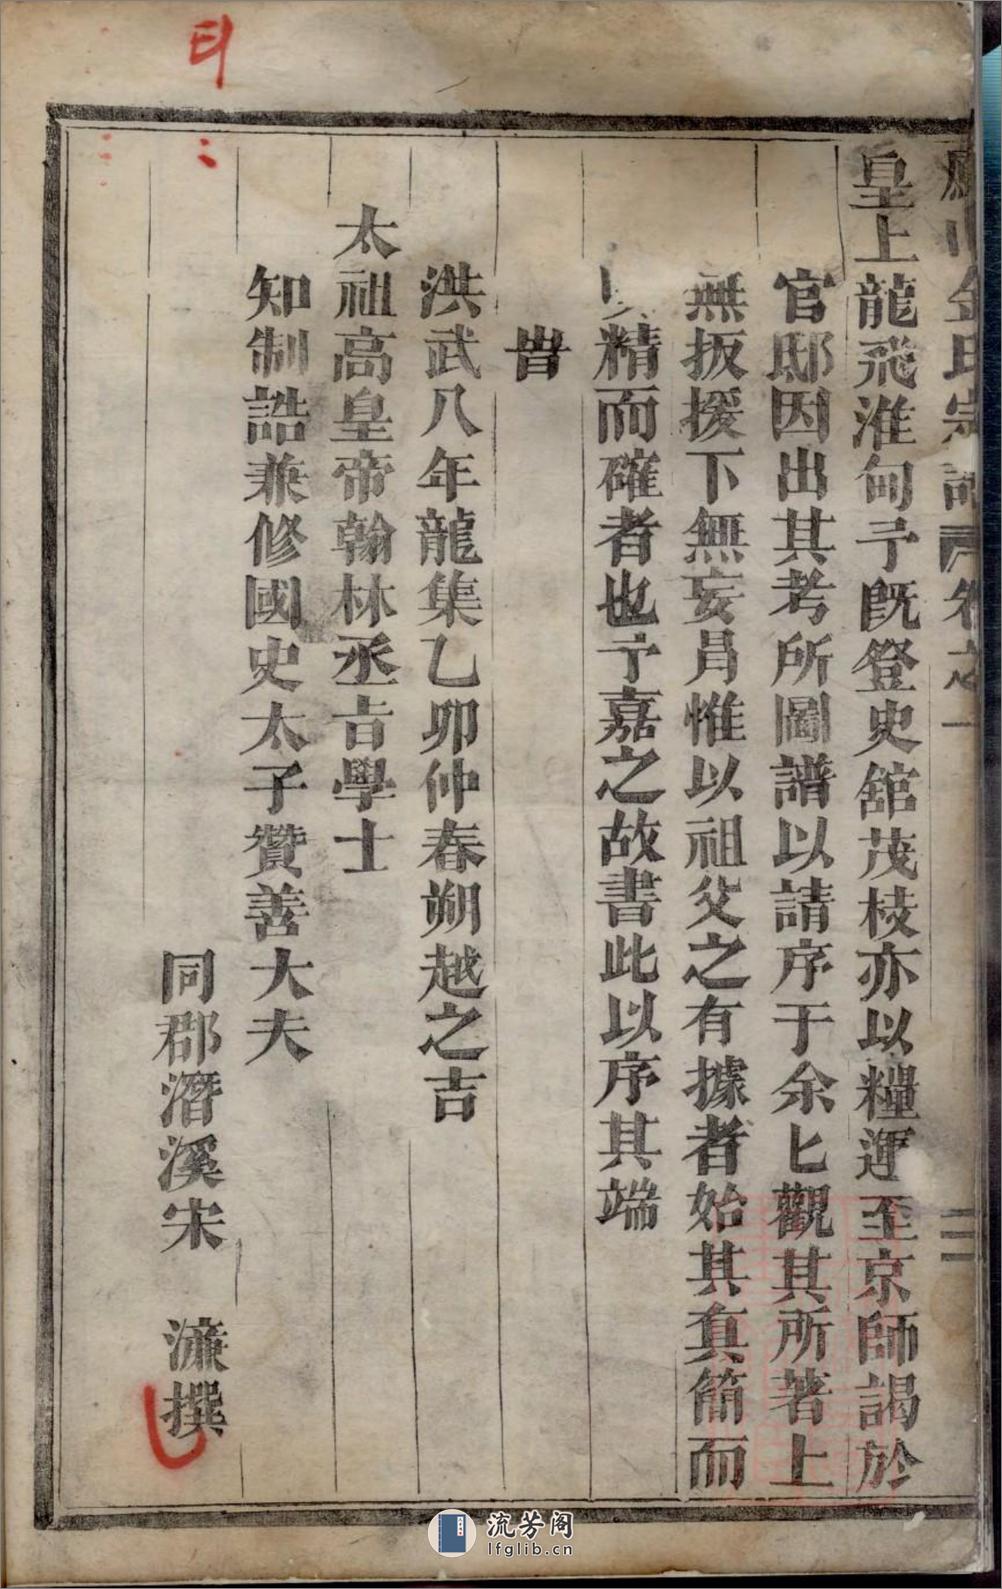 金氏宗譜 卷之一
皇上龍飛淮甸予既登史舘茂枝亦以糧運至京師謁於
官邸因出其考所圖譜以請序于余匕觀其所著上
無扳援下無妄冐惟以祖父之有據者始其眞簡而
精而確者也予嘉之故書此以序其端
旹
洪武八年龍集乙卯仲春朔越之吉
太祖高皇帝翰林丞㫖學士
知制誥兼修國史太子贊善大夫
同郡潛溪宋 濂撰
二
流芳阁
lfglib.cn